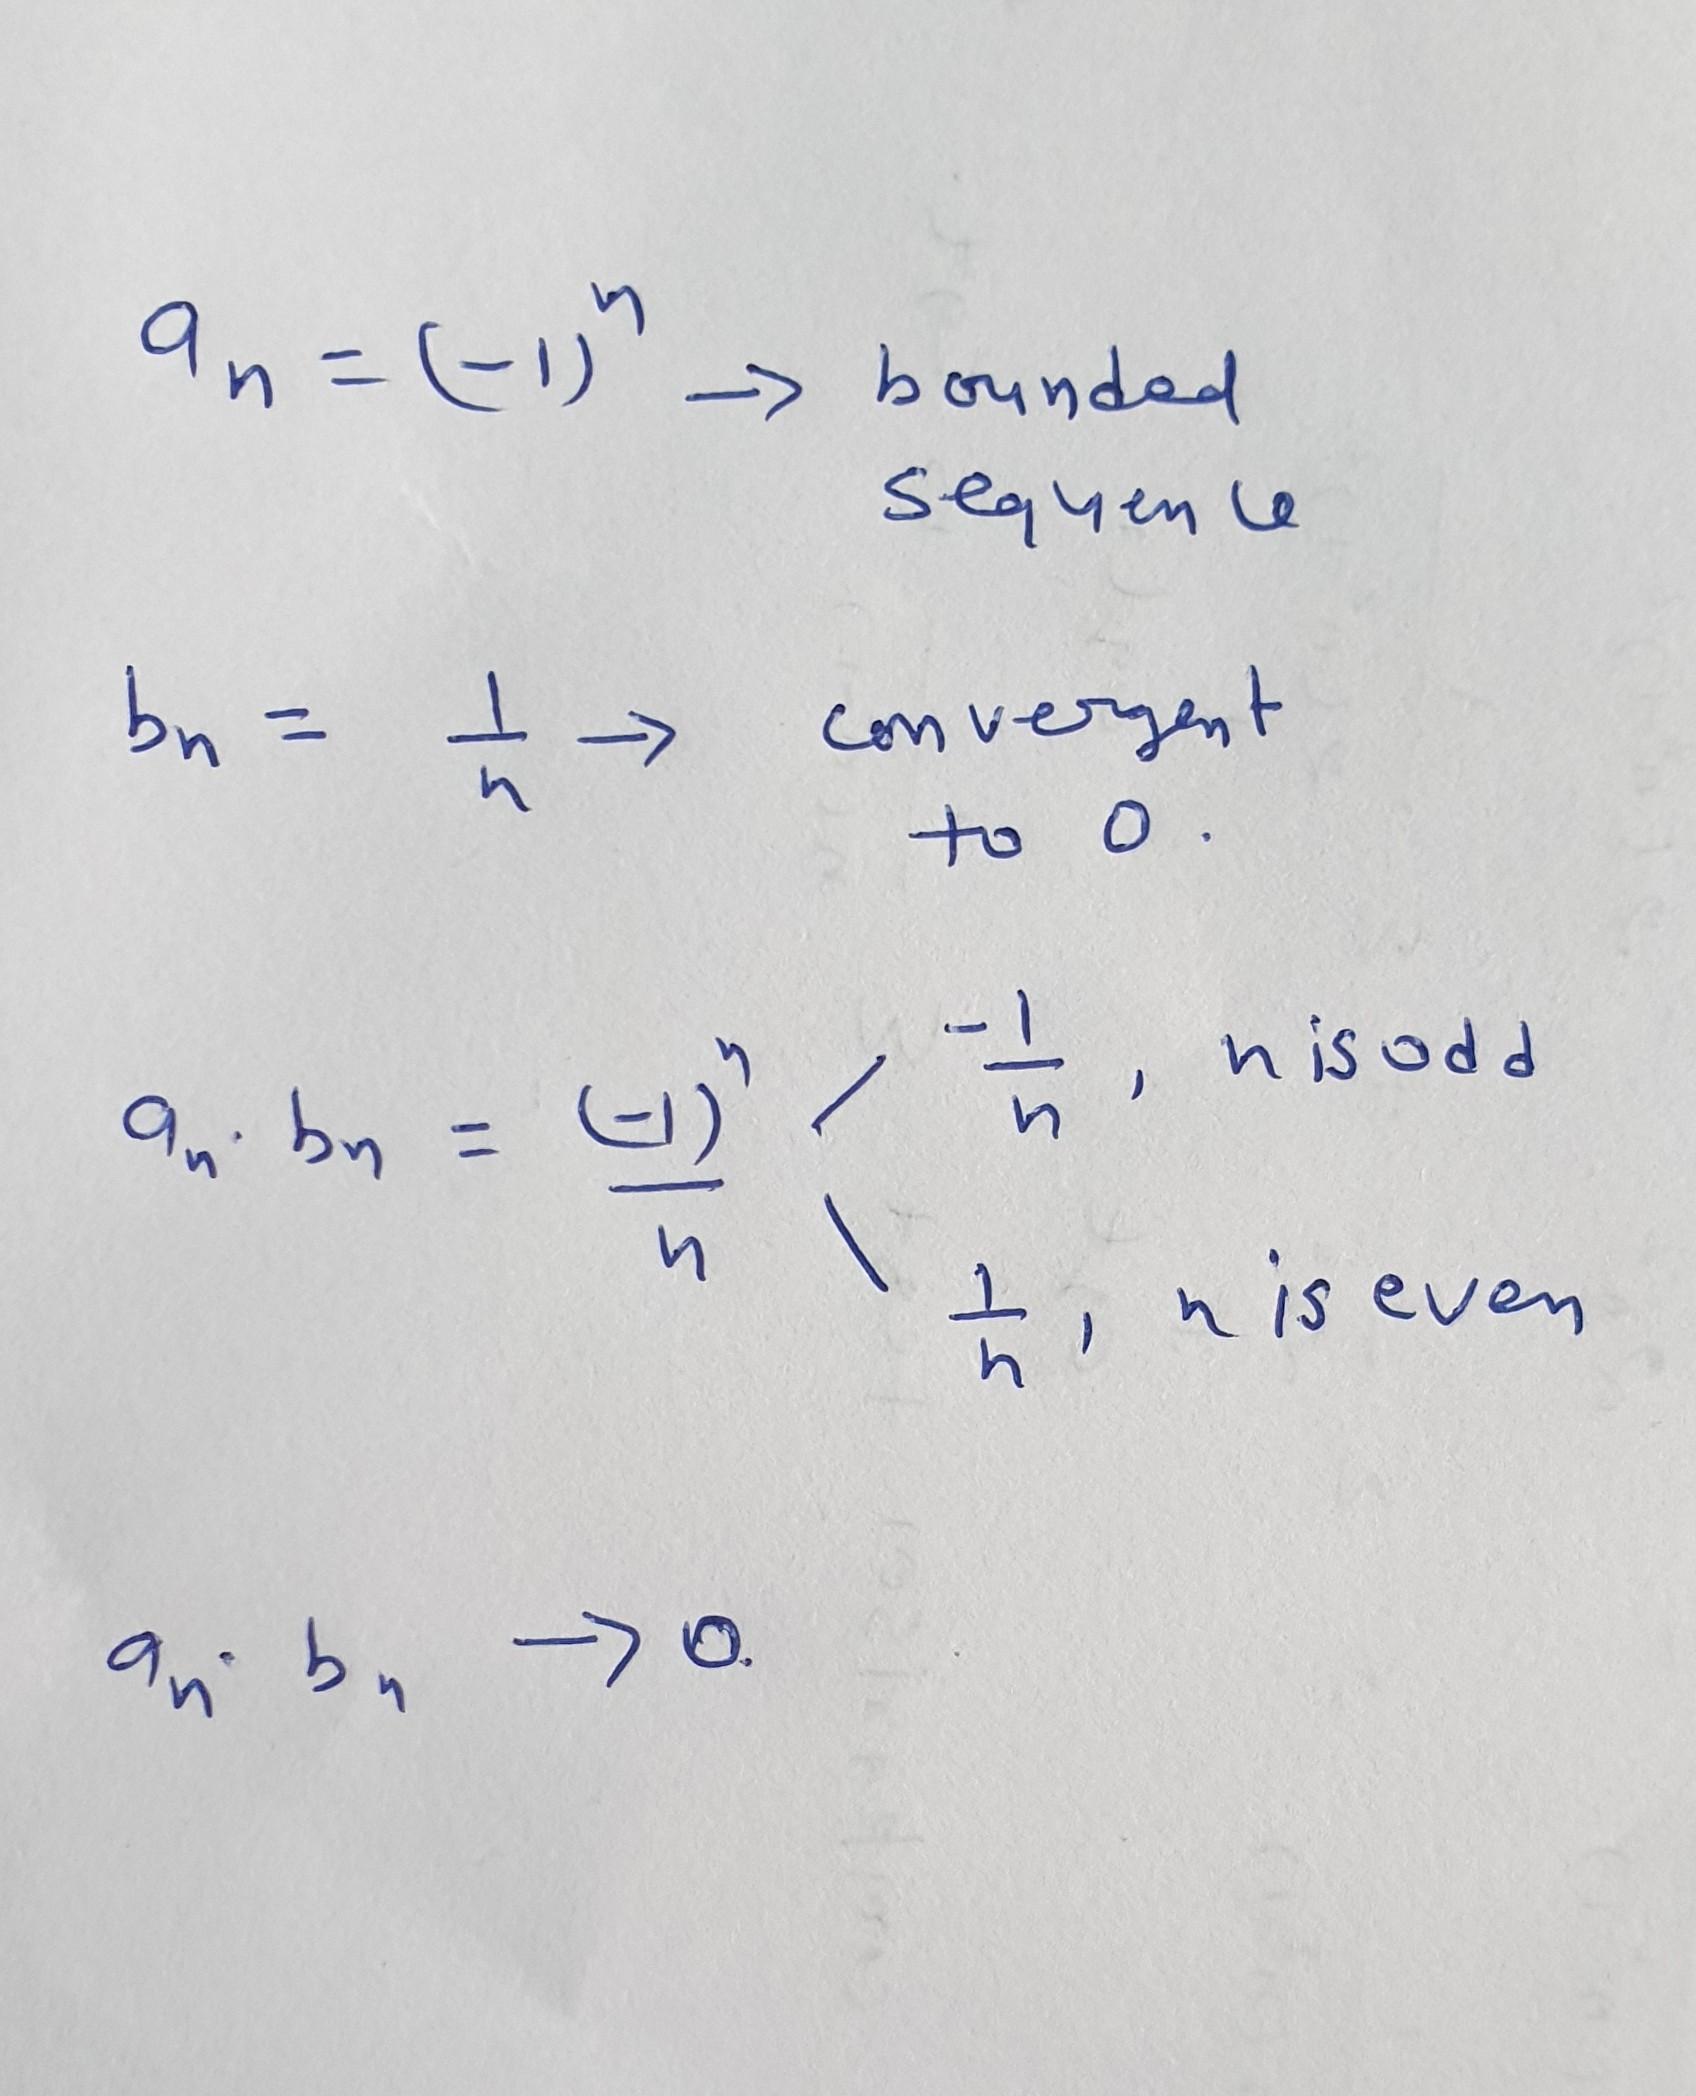 aₙ = (-1)ⁿ → bounded
sequence
bₙ = 1/n → convergent
to 0.
aₙ · bₙ = (-1)ⁿ/n
-1/n , n is odd
1/n , n is even
aₙ · bₙ → 0.